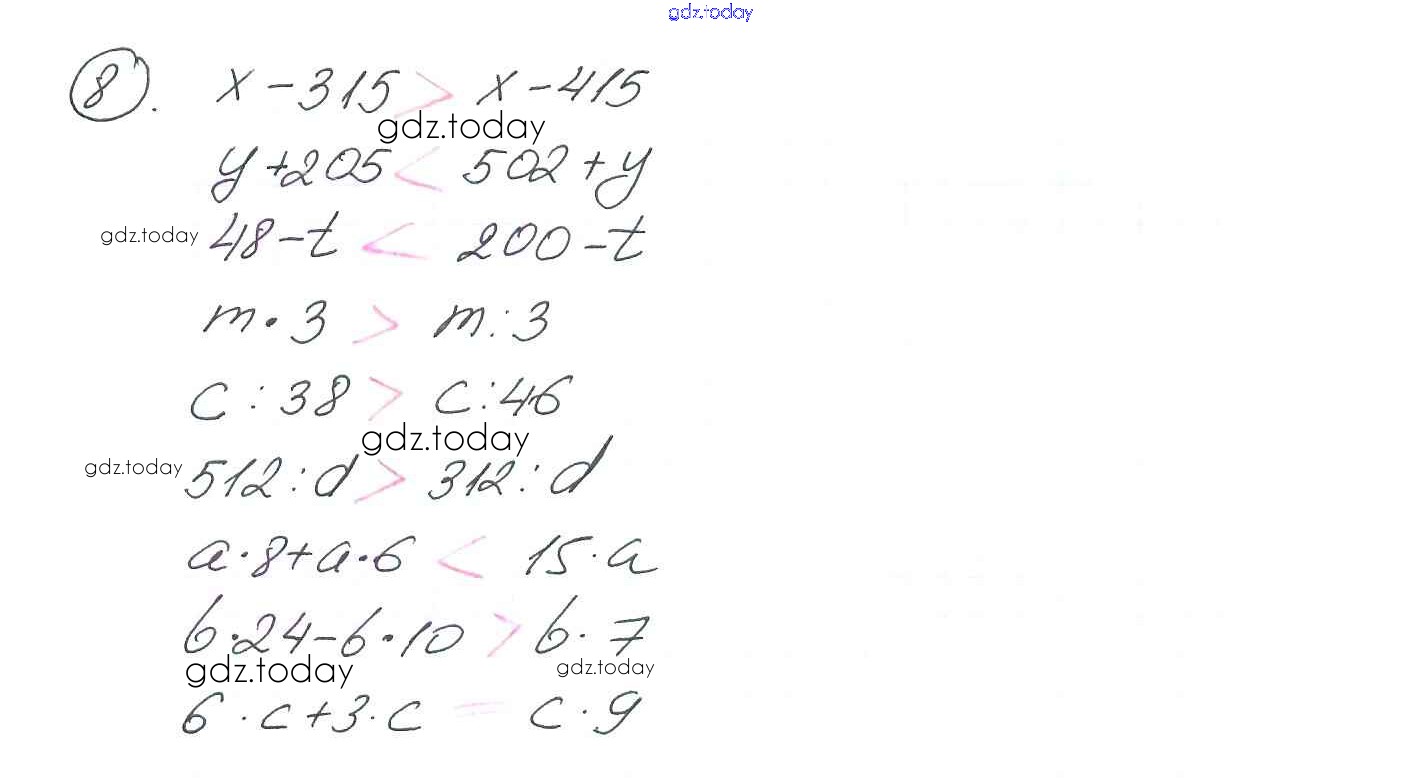 gdz.today
8. x - 315 > x - 415
gdz.today
y + 205 < 502 + y
gdz.today 48 - t < 200 - t
m · 3 > m : 3
c : 38 > c : 46
gdz.today
gdz.today 512 : d > 312 : d
a · 8 + a · 6 < 15 · a
b · 24 - b · 10 > b · 7
gdz.today gdz.today
6 · c + 3 · c = c · 9